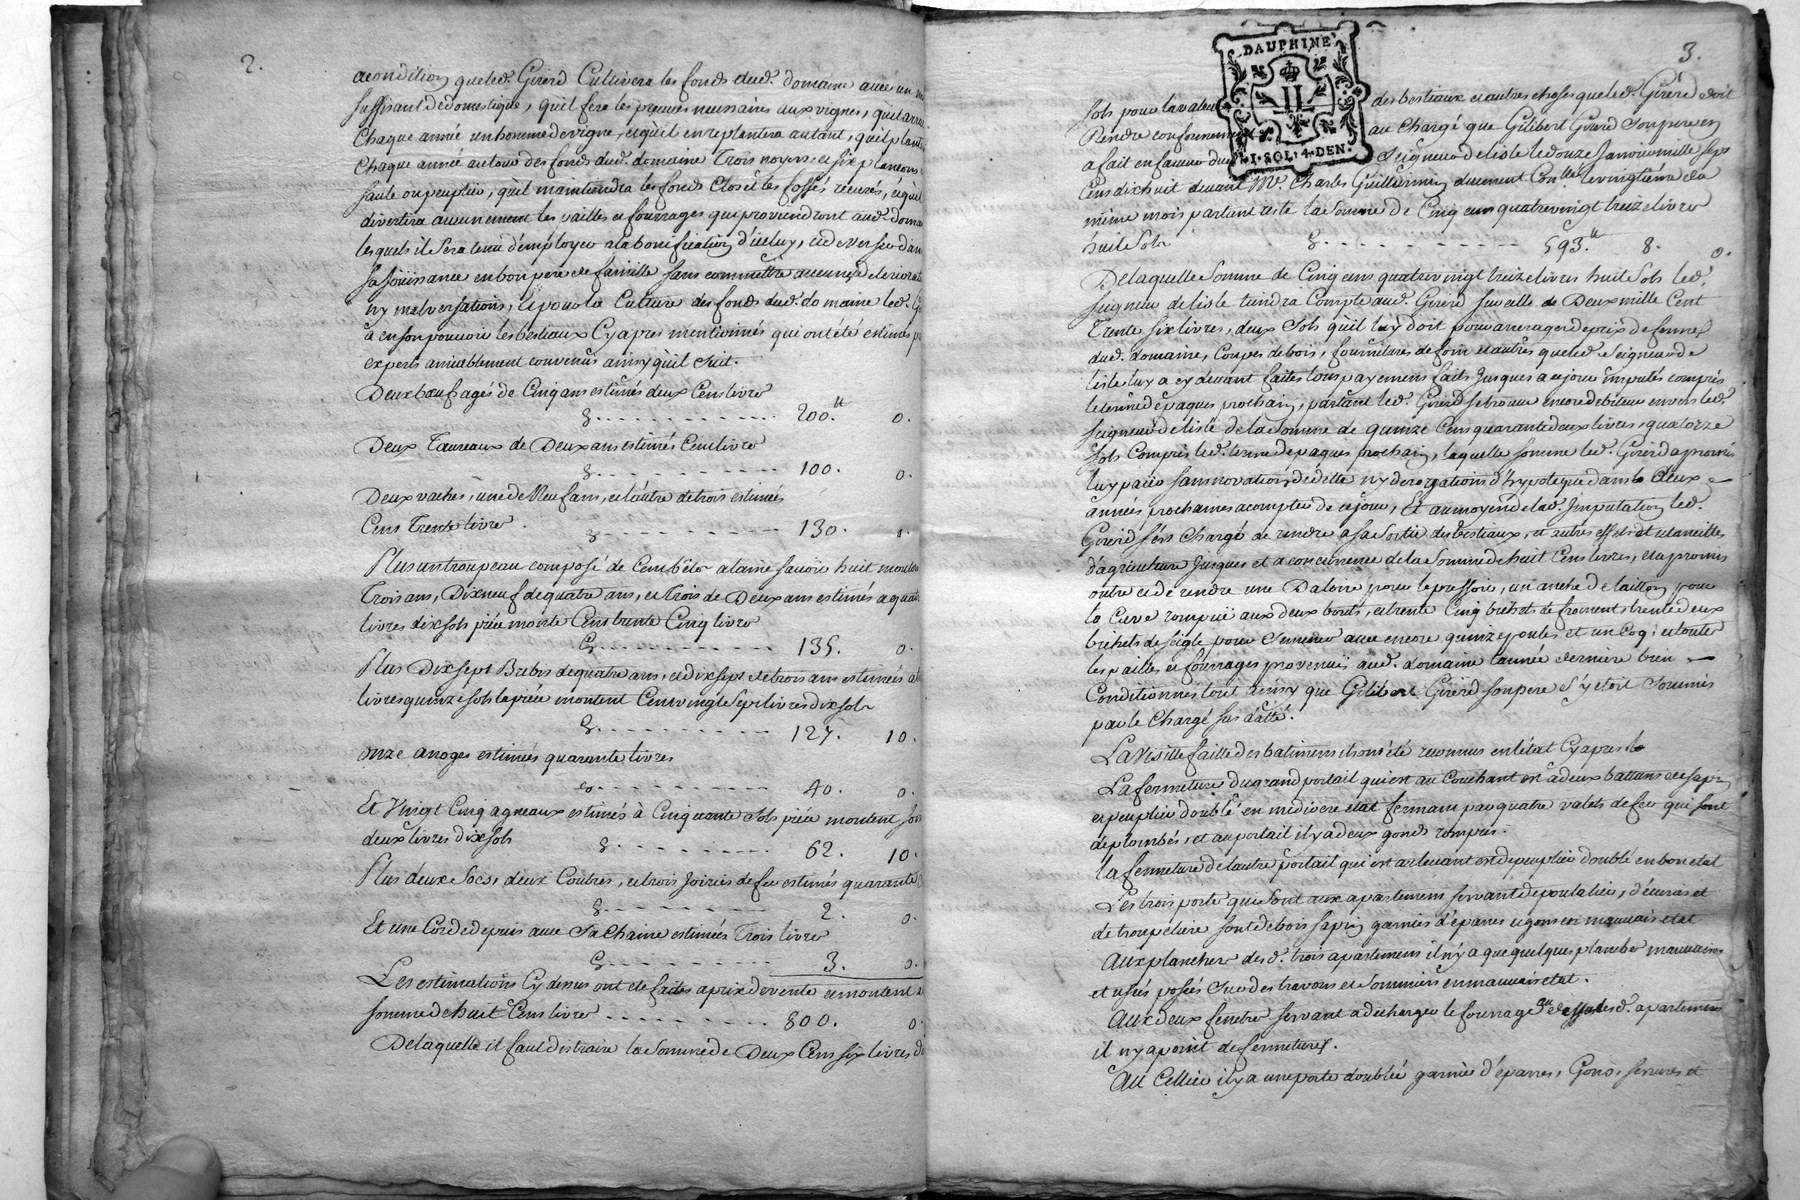 2.
acondition que led. Girerd Cultivera les fonds dud. domaine avec un
suffisant de domestique, quil fera les preuves necessaires aux vignes, quil
Chaque année un homme de vigne, et quil en replantera autant, quil
Chaque année autour des fonds dud. domaine Trois noyers et six plancons
saule ou peuplier, quil maintiendra les fonds Clos et les fossés recurés,
divertira aucunement les pailles et fourrages qui proviendront aud.
lesquels il sera tenu d'employer a la bonification d'iceluy, et d'user
sa joüissance en bon pere de famille sans commettre aucunes
ny malversations, et pour la Culture des fonds dud. domaine led.
a en son pouvoir les bestiaux Cy apres mentionnés qui ont été estimés
experts amiablement convenus ainsy quil suit.
Deux bœufs agés de Cinq ans estimés deux Cens livres
200.tt 0.
Deux Taureaux de Deux ans estimés Cent livres
100. 0.
Deux vaches, une de Neuf ans, et l'autre de trois estimées
Cent Trente livres.
130. 0.
Plus un troupeau composé de Cent bêtes a laine savoir huit moutons
Trois ans, Dix neuf de quatre ans, et trois de Deux ans estimés a quatre
livres dix sols piéce monte Cent trente Cinq livres
135. 0.
Plus Dix sept Brebis de quatre ans, et dix sept de trois ans estimées
livres quinze sols la piéce montent Cent vingt Sept livres dix sols
127. 10.
onze anoges estimés quarante livres
40. 0.
Et Vingt Cinq agneaux estimés à Cinquante sols piéce montent
deux livres dix sols
62. 10.
Plus deux Socs, deux Coutres, et trois de fer estimés quarante
2. 0.
Et une Corde de puis avec Sa Chaine estimées Trois livres
3. 0.
Les estimations Cy dessus ont été faites a prix de vente et montent
somme de huit Cens livres
800. 0.
De laquelle il faut distraire la somme de Deux Cens six livres
3.
DAUPHINÉ
1. SOL. 4. DEN.
sols pour la valeur des bestiaux et autres choses que led. Girerd doit
Rendre conformement au Chargé que Gilibert Girerd son pere en
a fait en faveur dud. Seigneur de lisle le douze Janvier mille sept
Cens dix huit devant Me. Charles Guillermin le vingtiéme de
même mois partant reste la Somme de Cinq cens quatre vingt treize livres
huit sols 593.tt 8. 0.
De laquelle somme de Cinq cens quatre vingt treize livres huit sols led.
seigneur de lisle tiendra Compte aud. Girerd sur celle de Deux mille Cent
Trente six livres, deux sols qu'il luy doit pour arerages de prix de ferme
dud. domaine, Coupes de bois, fournitures de foin et autres que led. Seigneur de
lisle luy a cy devant faites tous payemens faits jusques a ce jour imputés compris
le terme de paques prochain, partant led. Girerd se trouve encore debiteur envers led.
seigneur de lisle de la Somme de quinze Cens quarante deux livres, quatorze
sols Compris led. terme de paques prochain, laquelle somme led. Girerd a promis
luy païer sans novation de dette ny derogation d'hypoteque dans les Deux
années prochaines a compter de ce jour, Et au moyen de lad. Imputation led.
Girerd s'est Chargé de rendre a sa Sortie des bestiaux, et autres effets et utancilles
d'agriculture jusques et a concurrence de la Somme de huit Cens livres, et a promis
outre ce de rendre une Daloire pour le pressoir, un anche de laitton pour
la Cuve rompüe aux deux bouts, et trente Cinq bichets de froment, trente deux
bichets de seigle pour Semence avec encore quinze poules et un Coq, et toutes
les pailles et fourrages provenus aud. domaine l'année derniere bien
Conditionnés tout ainsy que Gilibert Girerd son pere s'y etoit soumis
par le Chargé sus datté.
La visitte faitte des batimens ils ont été reconnus en l'état Cy apres
La fermeture du grand portail qui est au Couchant est a deux battans de sapin
et peuplier doublé en mediocre état fermant par quatre valets de fer qui sont
deplombés, et au portail il y a deux gonds rompus.
la fermeture de l'autre portail qui est au levant est de peuplier doublé en bon etat
Les trois portes qui sont aux apartemens servant de poulalier, d'écuries et
de troupeliere sont de bois sapin garnies d'épares et gons en mauvais etat
Aux plancher des d. trois apartemens il n'y a que quelques planches mauvaises
et usées posées Sur des travons et Sommiers en mauvais etat.
Aux deux fenetres servant a decharger le fourrage au dessus desd. apartemens
il n'y a point de fermetures.
Au Cellier il y a une porte doublée garnie d'éparres, Gons, serrures et